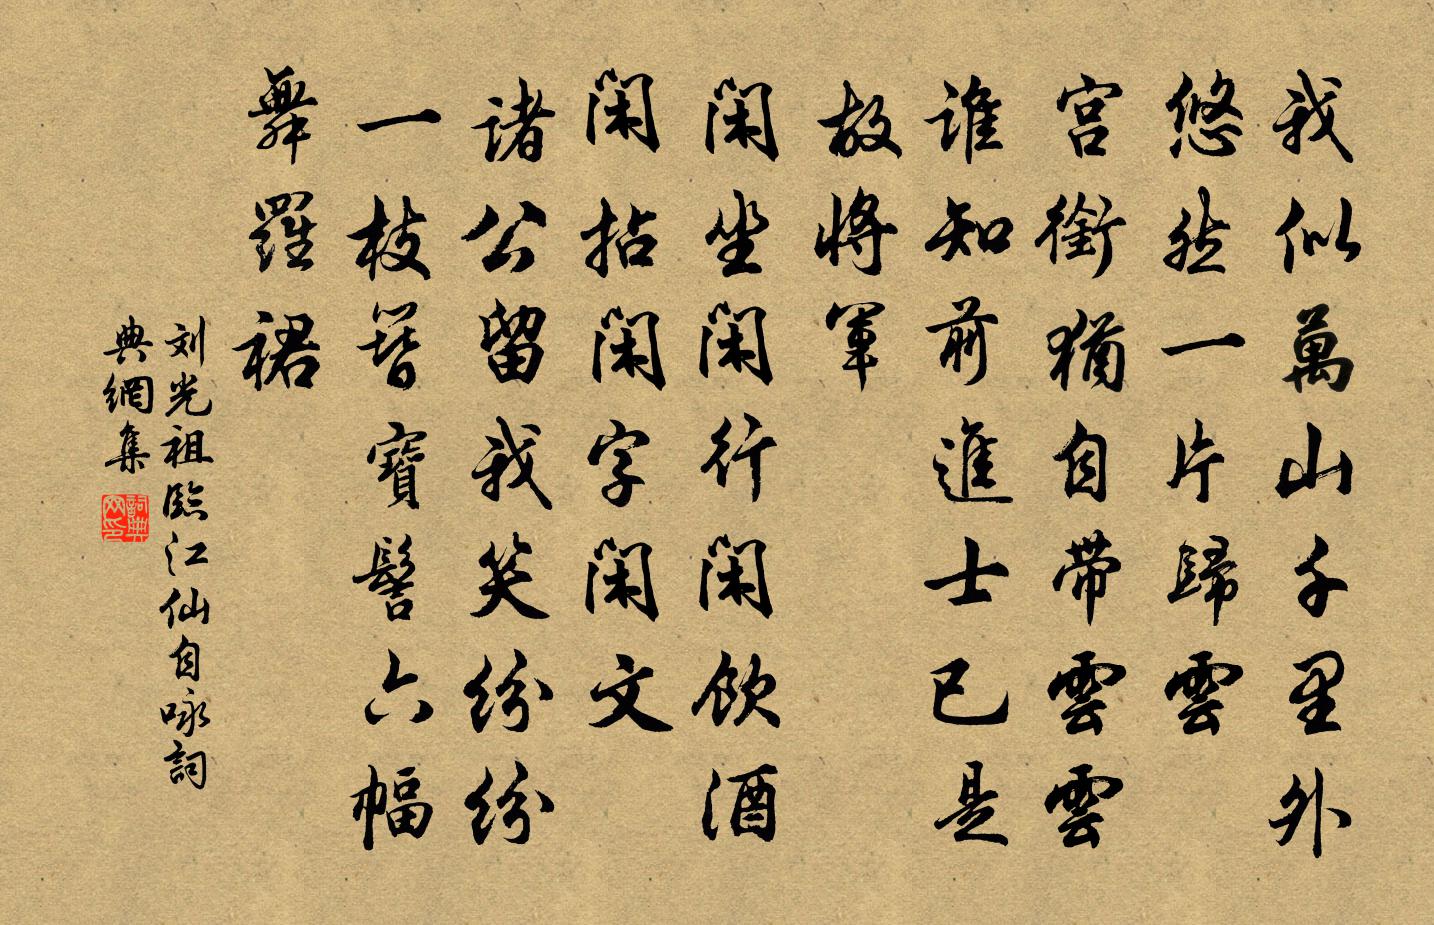 我似萬山千里外
悠然一片歸雲
宮銜猶自帶雲雲
誰知前進士已是
故將軍
閑坐閑行閑飲酒
閑拈閑字閑文
諸公留我笑紛紛
一枝簪寶髻六幅
舞羅裙
刘光祖臨江仙自咏詞
典網集
詞典網印